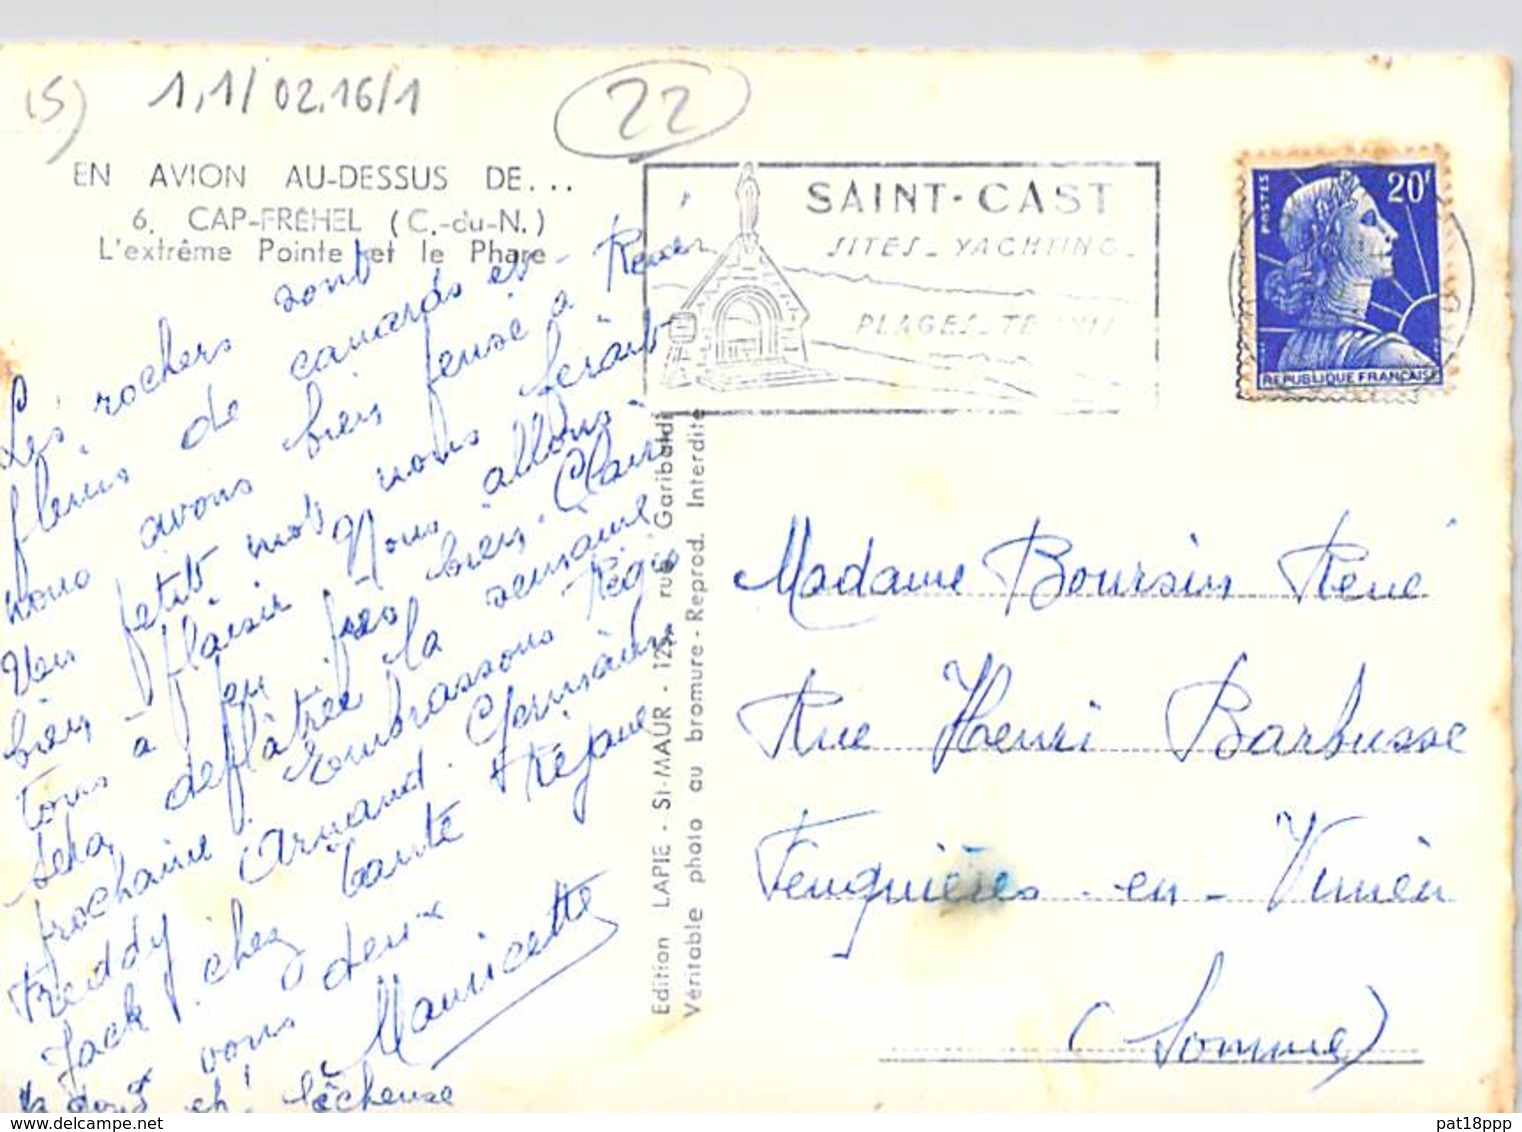 (S) 1,1/02.16/1 22
EN AVION AU-DESSUS DE...
6. CAP-FRÉHEL (C.-du-N.)
L'extrême Pointe et le Phare
SAINT-CAST
SITES - YACHTING -
PLAGES - TENNIS
POSTES 20F
REPUBLIQUE FRANÇAISE
Les rochers sont
pleins de canards et
nous avons bien pensé à René
Un petit mot nous ferait
bien plaisir Nous allons
tous à peu près bien. Claire
sera deplâtrée la semaine
prochaine. embrassons Régis
Freddy Arnaud. Germain
Jack chez tante Réjane
vous deux
Mauricette
lâcheuse
Edition LAPIE - St-MAUR - 125, rue Garibaldi
Véritable photo au bromure - Reprod. Interdite
Madame Boursin René
Rue Henri Barbusse
Feuquières-en-Vimeu
(Somme)
pat18ppp